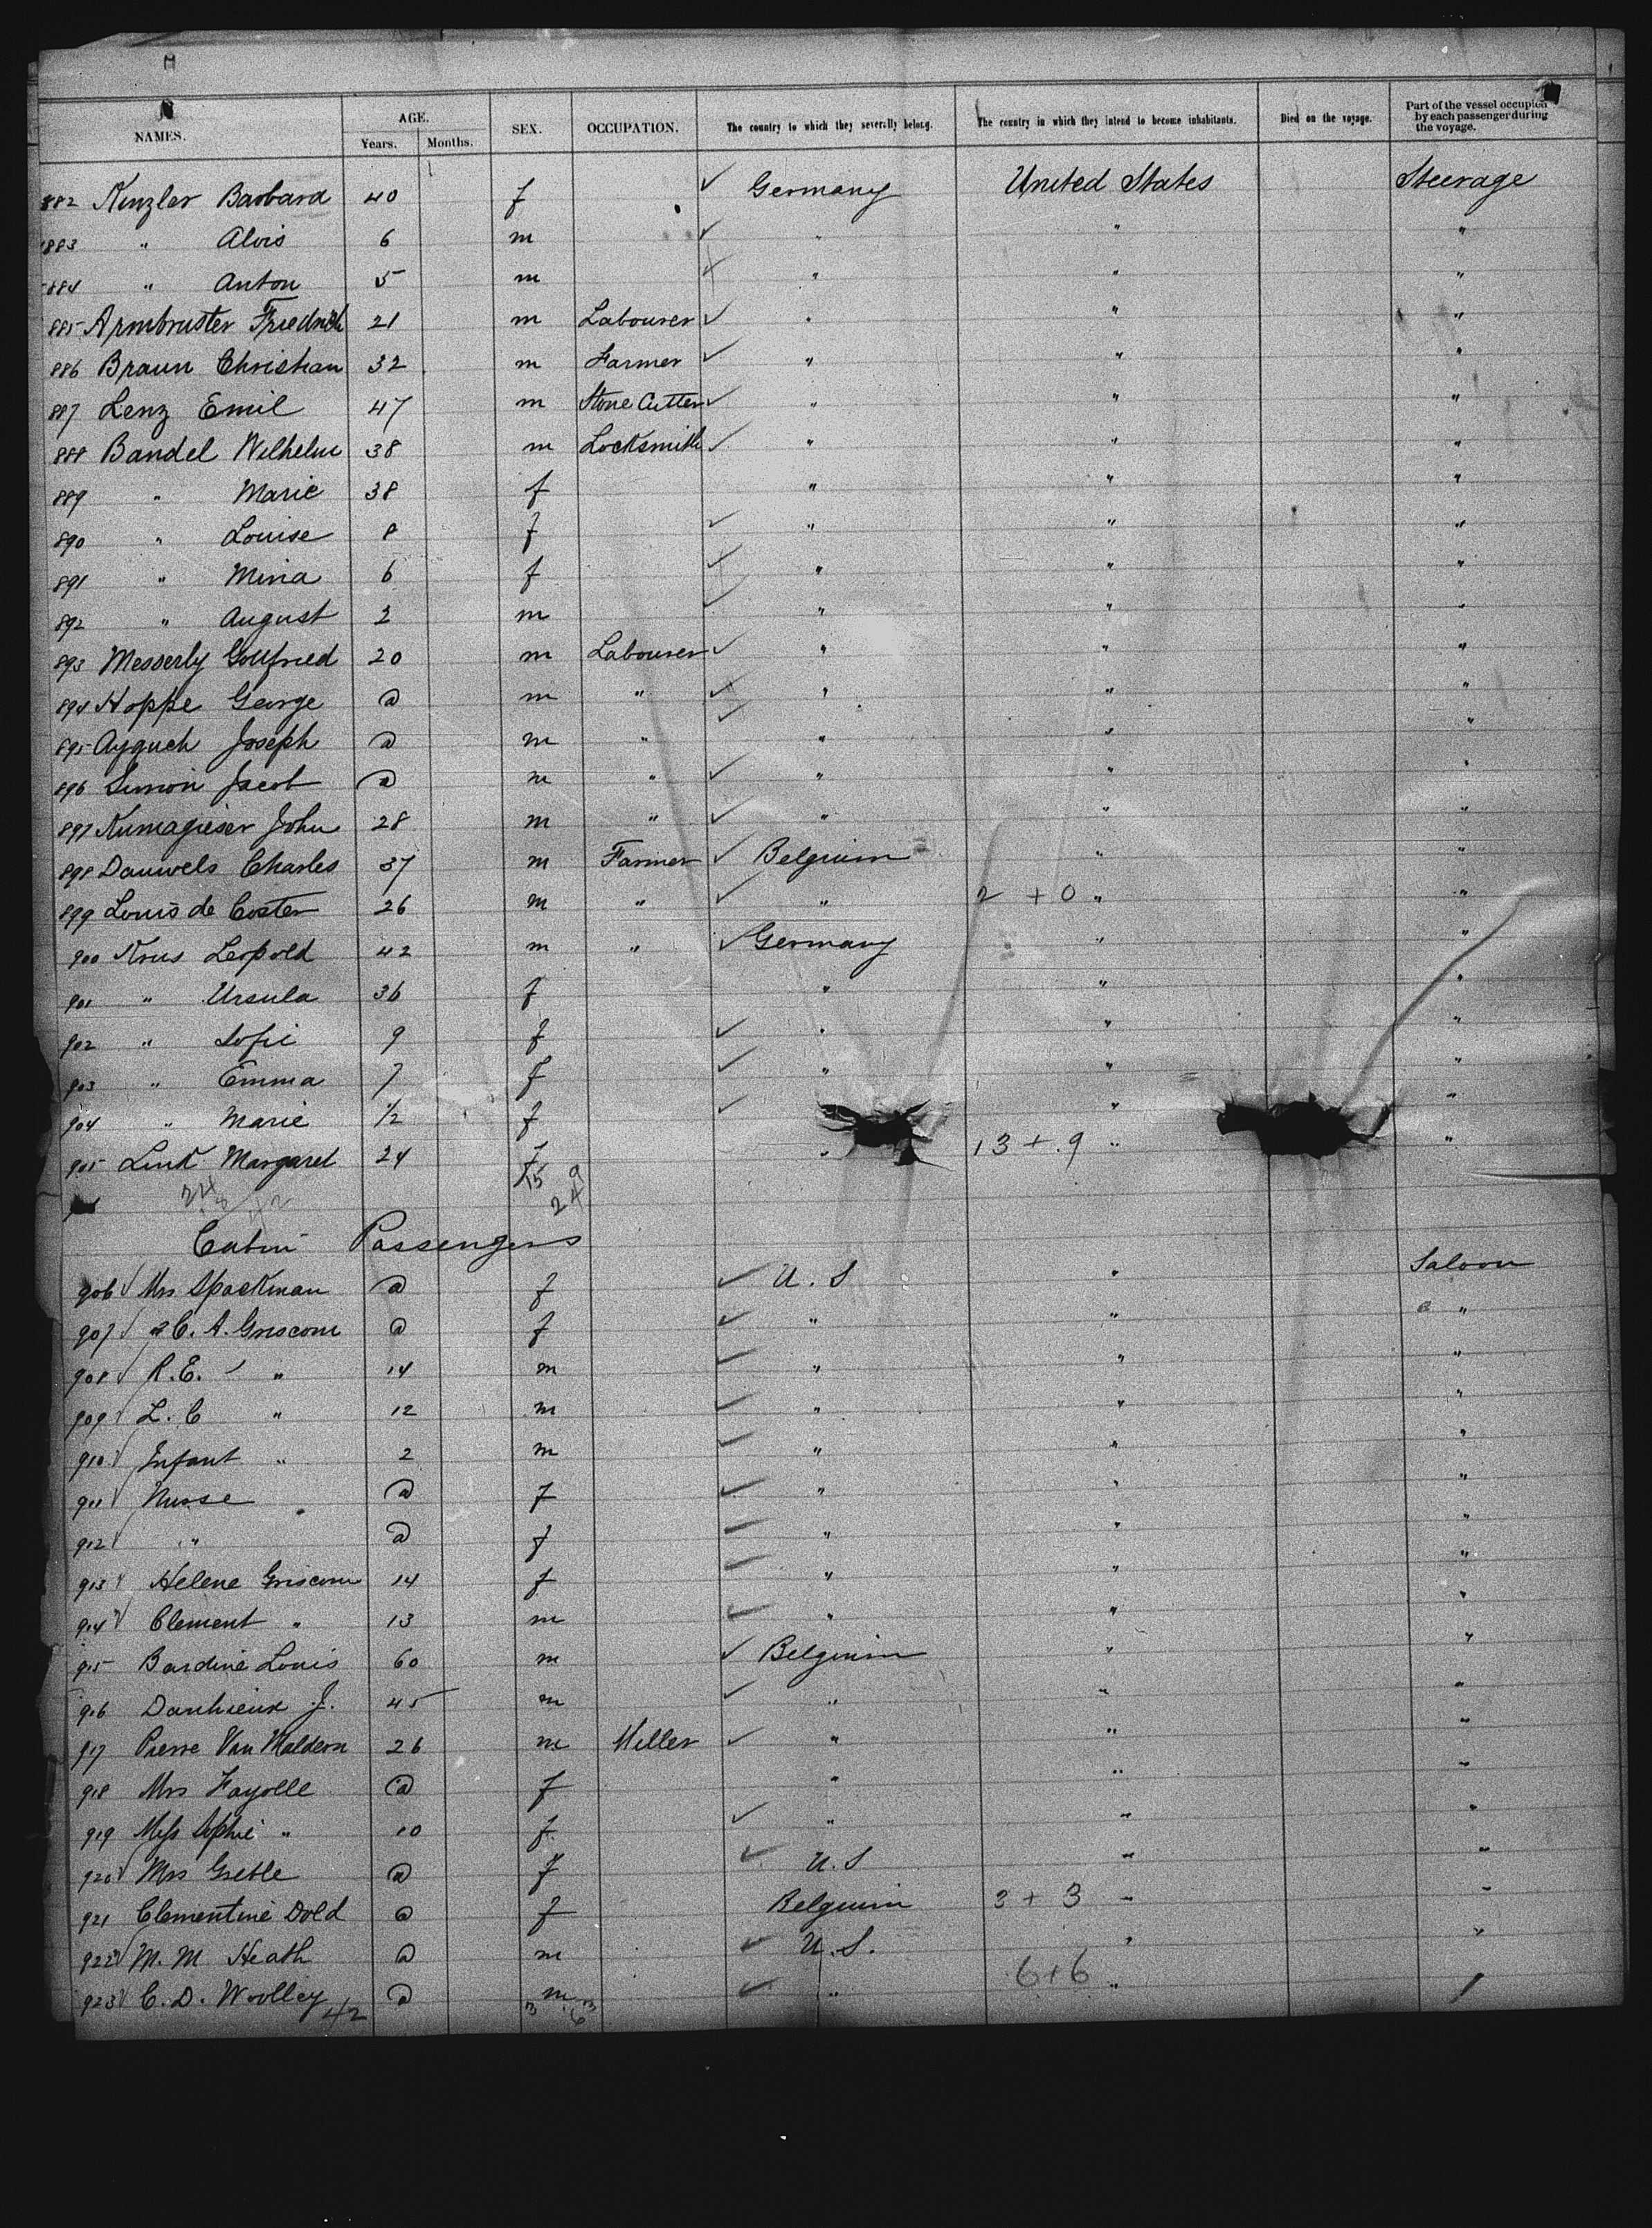 NAMES. AGE. Years. Months. SEX. OCCUPATION. The country to which they severally belong. The country in which they intend to become inhabitants. Died on the voyage. Part of the vessel occupied by each passenger during the voyage.
882 Kunzler Barbara 40 f ✓ Germany United States Steerage
883 " Alois 6 m ✓ " " "
884 " Anton 5 m ✓ " " "
885 Armbruster Friedrich 21 m Labourer ✓ " " "
886 Braun Christian 32 m Farmer ✓ " " "
887 Lenz Emil 47 m Stone Cutter ✓ " " "
888 Bandel Wilhelm 38 m Locksmith ✓ " " "
889 " Marie 38 f " " "
890 " Louise 8 f ✓ " " "
891 " Mina 6 f ✓ " " "
892 " August 2 m ✓ " " "
893 Messerly Gottfried 20 m Labourer ✓ " " "
894 Hoppe George @ m " ✓ " " "
895 Joseph @ m " ✓ " " "
896 Simon Jacob @ m " ✓ " " "
897 John 28 m " ✓ " " "
898 Dauwels Charles 37 m Farmer ✓ Belguim " "
899 Louis de Coster 26 m " ✓ " 2 + 0 " "
900 Krus Leopold 42 m " ✓ Germany " "
901 " Ursula 36 f " " "
902 " Sofie 9 f ✓ " " "
903 " Emma 7 f ✓ " " "
904 " Marie 1/2 f ✓ " "
905 Link Margaret 24 f " 13 + 9 " "
15 249
Cabin Passengers
906 ✓ Mrs Spackman @ f ✓ U. S " Saloon
907 ✓ " C. A. Griscom @ f ✓ " " "
908 ✓ R. E. " 14 m ✓ " " "
909 ✓ L. C " 12 m ✓ " " "
910 ✓ Infant " 2 m ✓ " " "
911 ✓ Nurse @ f ✓ " " "
912 ✓ " @ f ✓ " " "
913 ✓ Helene Griscom 14 f ✓ " " "
914 ✓ Clement " 13 m ✓ " " "
915 Bardine Louis 60 m ✓ Belguim " "
916 Danhieux J. 45 m ✓ " " "
917 Pierre Van Maldern 26 m Miller ✓ " " "
918 Mrs Fayolle @ f " " "
919 Miss Sophie " 10 f ✓ " " "
920 ✓ Mrs Greble @ f ✓ U. S " "
921 Clementine Dold @ f Belguim 3 + 3 " "
922 ✓ M. M Heath @ m ✓ U. S. " "
923 ✓ C. D. Woolley @ m ✓ " 6+6 "
42